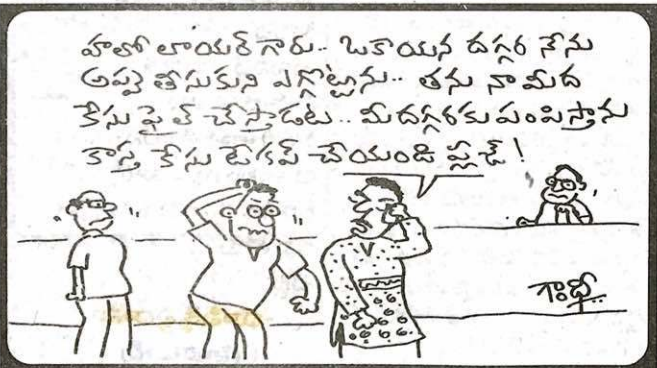 హలో లాయర్ గారు.. ఒకాయన దగ్గర నేను
అప్పు తీసుకుని ఎగ్గొట్టాను.. తను నా మీద
కేసు ఫైల్ చేస్తాడట.. మీదగ్గరకు పంపిస్తాను
కాస్త కేసు టేకప్ చేయండి ప్లీజ్!
గాంధీ..